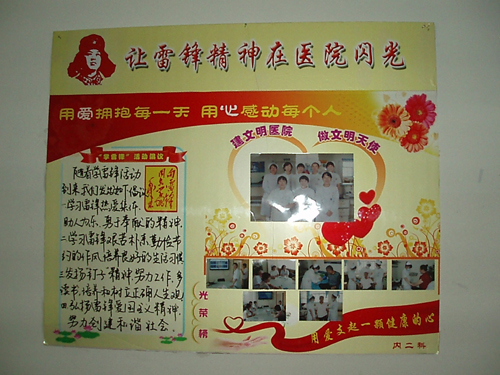 让雷锋精神在医院闪光
用爱拥抱每一天 用心感动每个人
建文明医院 做文明天使
"学雷锋"活动倡议
随着学雷锋活动
到来我们发出如下倡议
一学习雷锋热爱集体
助人为乐，勇于奉献的精神
二学习雷锋艰苦朴素，勤俭节
约的作风，培养良好的生活习惯
三发扬钉子精神，努力工作，多
读书，培养和树立正确人生观
四弘扬雷锋爱国主义精神，
努力创建和谐社会
向雷锋同志学习
光荣榜
用爱支起一颗健康的心
内二科